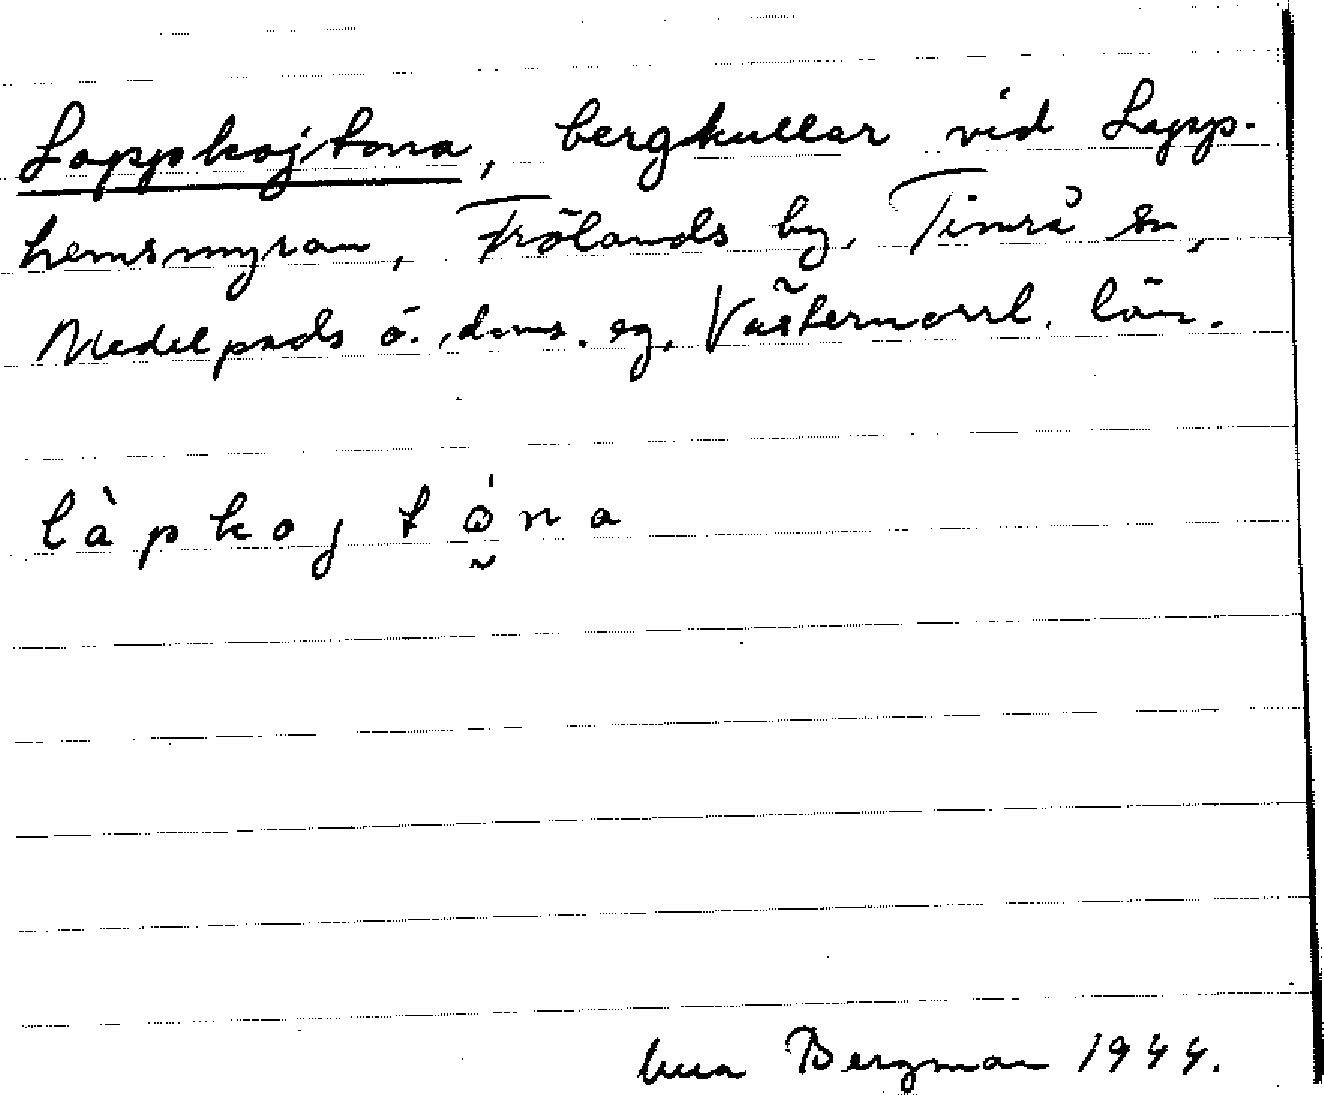 Lappkojtona, bergkullar vid Lapp-
hemsmyran, Frölands by, Timrå sn,
Medelpads ö. doms. eg. Västernorrl. län.
làpkojtǫ́na
Bergman 1944.